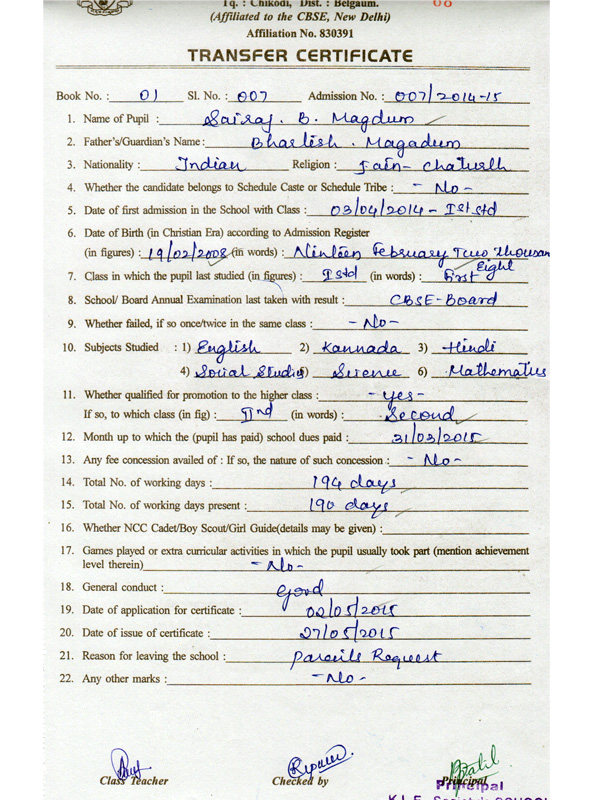 Tq. : Chikodi, Dist. : Belgaum.
(Affiliated to the CBSE, New Delhi)
Affiliation No. 830391
TRANSFER CERTIFICATE
Book No. : 01 Sl. No. : 007 Admission No. : 007/2014-15
1. Name of Pupil : Sairaj. B. Magdum
2. Father's/Guardian's Name : Bharlesh. Magadum
3. Nationality : Indian Religion : Jain- Chaturth
4. Whether the candidate belongs to Schedule Caste or Schedule Tribe : - No -
5. Date of first admission in the School with Class : 03/04/2014 - Ist std
6. Date of Birth (in Christian Era) according to Admission Register
(in figures) : 19/02/2008 (in words) : Ninteen February Two Thousan
Eight
7. Class in which the pupil last studied (in figures) : Istd (in words) : First
8. School/ Board Annual Examination last taken with result : CBSE-Board
9. Whether failed, if so once/twice in the same class : - No -
10. Subjects Studied : 1) English 2) Kannada 3) Hindi
4) Social Studies 5) Science 6) Mathematics
11. Whether qualified for promotion to the higher class : - yes -
If so, to which class (in fig) : IInd (in words) : Second
12. Month up to which the (pupil has paid) school dues paid : 31/03/2015
13. Any fee concession availed of : If so, the nature of such concession : - No -
14. Total No. of working days : 194 days
15. Total No. of working days present : 190 days
16. Whether NCC Cadet/Boy Scout/Girl Guide(details may be given) :
17. Games played or extra curricular activities in which the pupil usually took part (mention achievement
level therein) - No -
18. General conduct : Good
19. Date of application for certificate : 02/05/2015
20. Date of issue of certificate : 27/05/2015
21. Reason for leaving the school : Parents Request
22. Any other marks : - No -
Class Teacher Checked by Principal
Principal